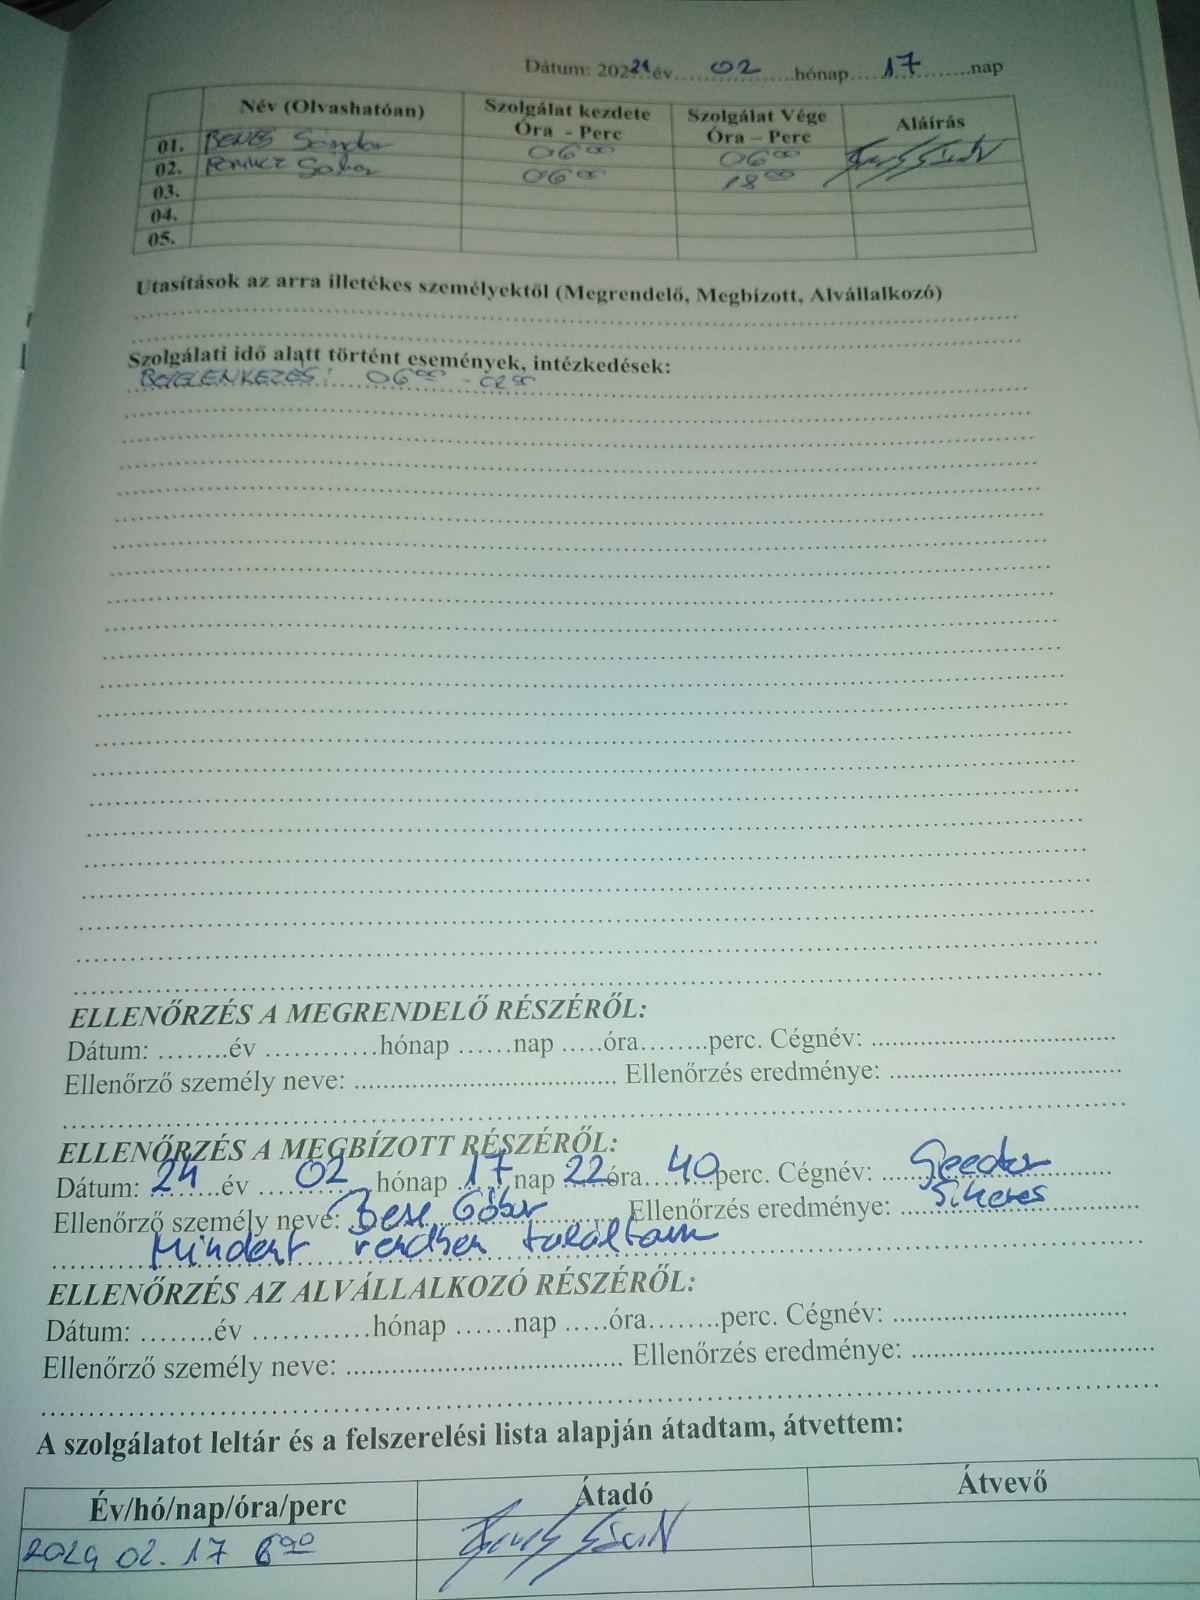 Dátum: 2024 év 02 hónap 17 nap
Név (Olvashatóan) Szolgálat kezdete Óra - Perc Szolgálat Vége Óra – Perc Aláírás
01. BENES Sándor 06 00 06 00
02. 06 00 18 00
03.
04.
05.
Utasítások az arra illetékes személyektől (Megrendelő, Megbízott, Alvállalkozó)
Szolgálati idő alatt történt események, intézkedések:
BEJELENKEZÉS: 06 00
ELLENŐRZÉS A MEGRENDELŐ RÉSZÉRŐL:
Dátum: ........év ............hónap ......nap .....óra........perc. Cégnév: ...................................
Ellenőrző személy neve: ...................................... Ellenőrzés eredménye: ...................................
ELLENŐRZÉS A MEGBÍZOTT RÉSZÉRŐL:
Dátum: 24 év 02 hónap 17 nap 22 óra 40 perc. Cégnév:
Ellenőrző személy neve: Bese Gábor Ellenőrzés eredménye: Sikeres
Mindent rendben találtam
ELLENŐRZÉS AZ ALVÁLLALKOZÓ RÉSZÉRŐL:
Dátum: ........év ............hónap ......nap .....óra........perc. Cégnév: ...................................
Ellenőrző személy neve: ...................................... Ellenőrzés eredménye: ...................................
A szolgálatot leltár és a felszerelési lista alapján átadtam, átvettem:
Év/hó/nap/óra/perc Átadó Átvevő
2024 02. 17 6 00